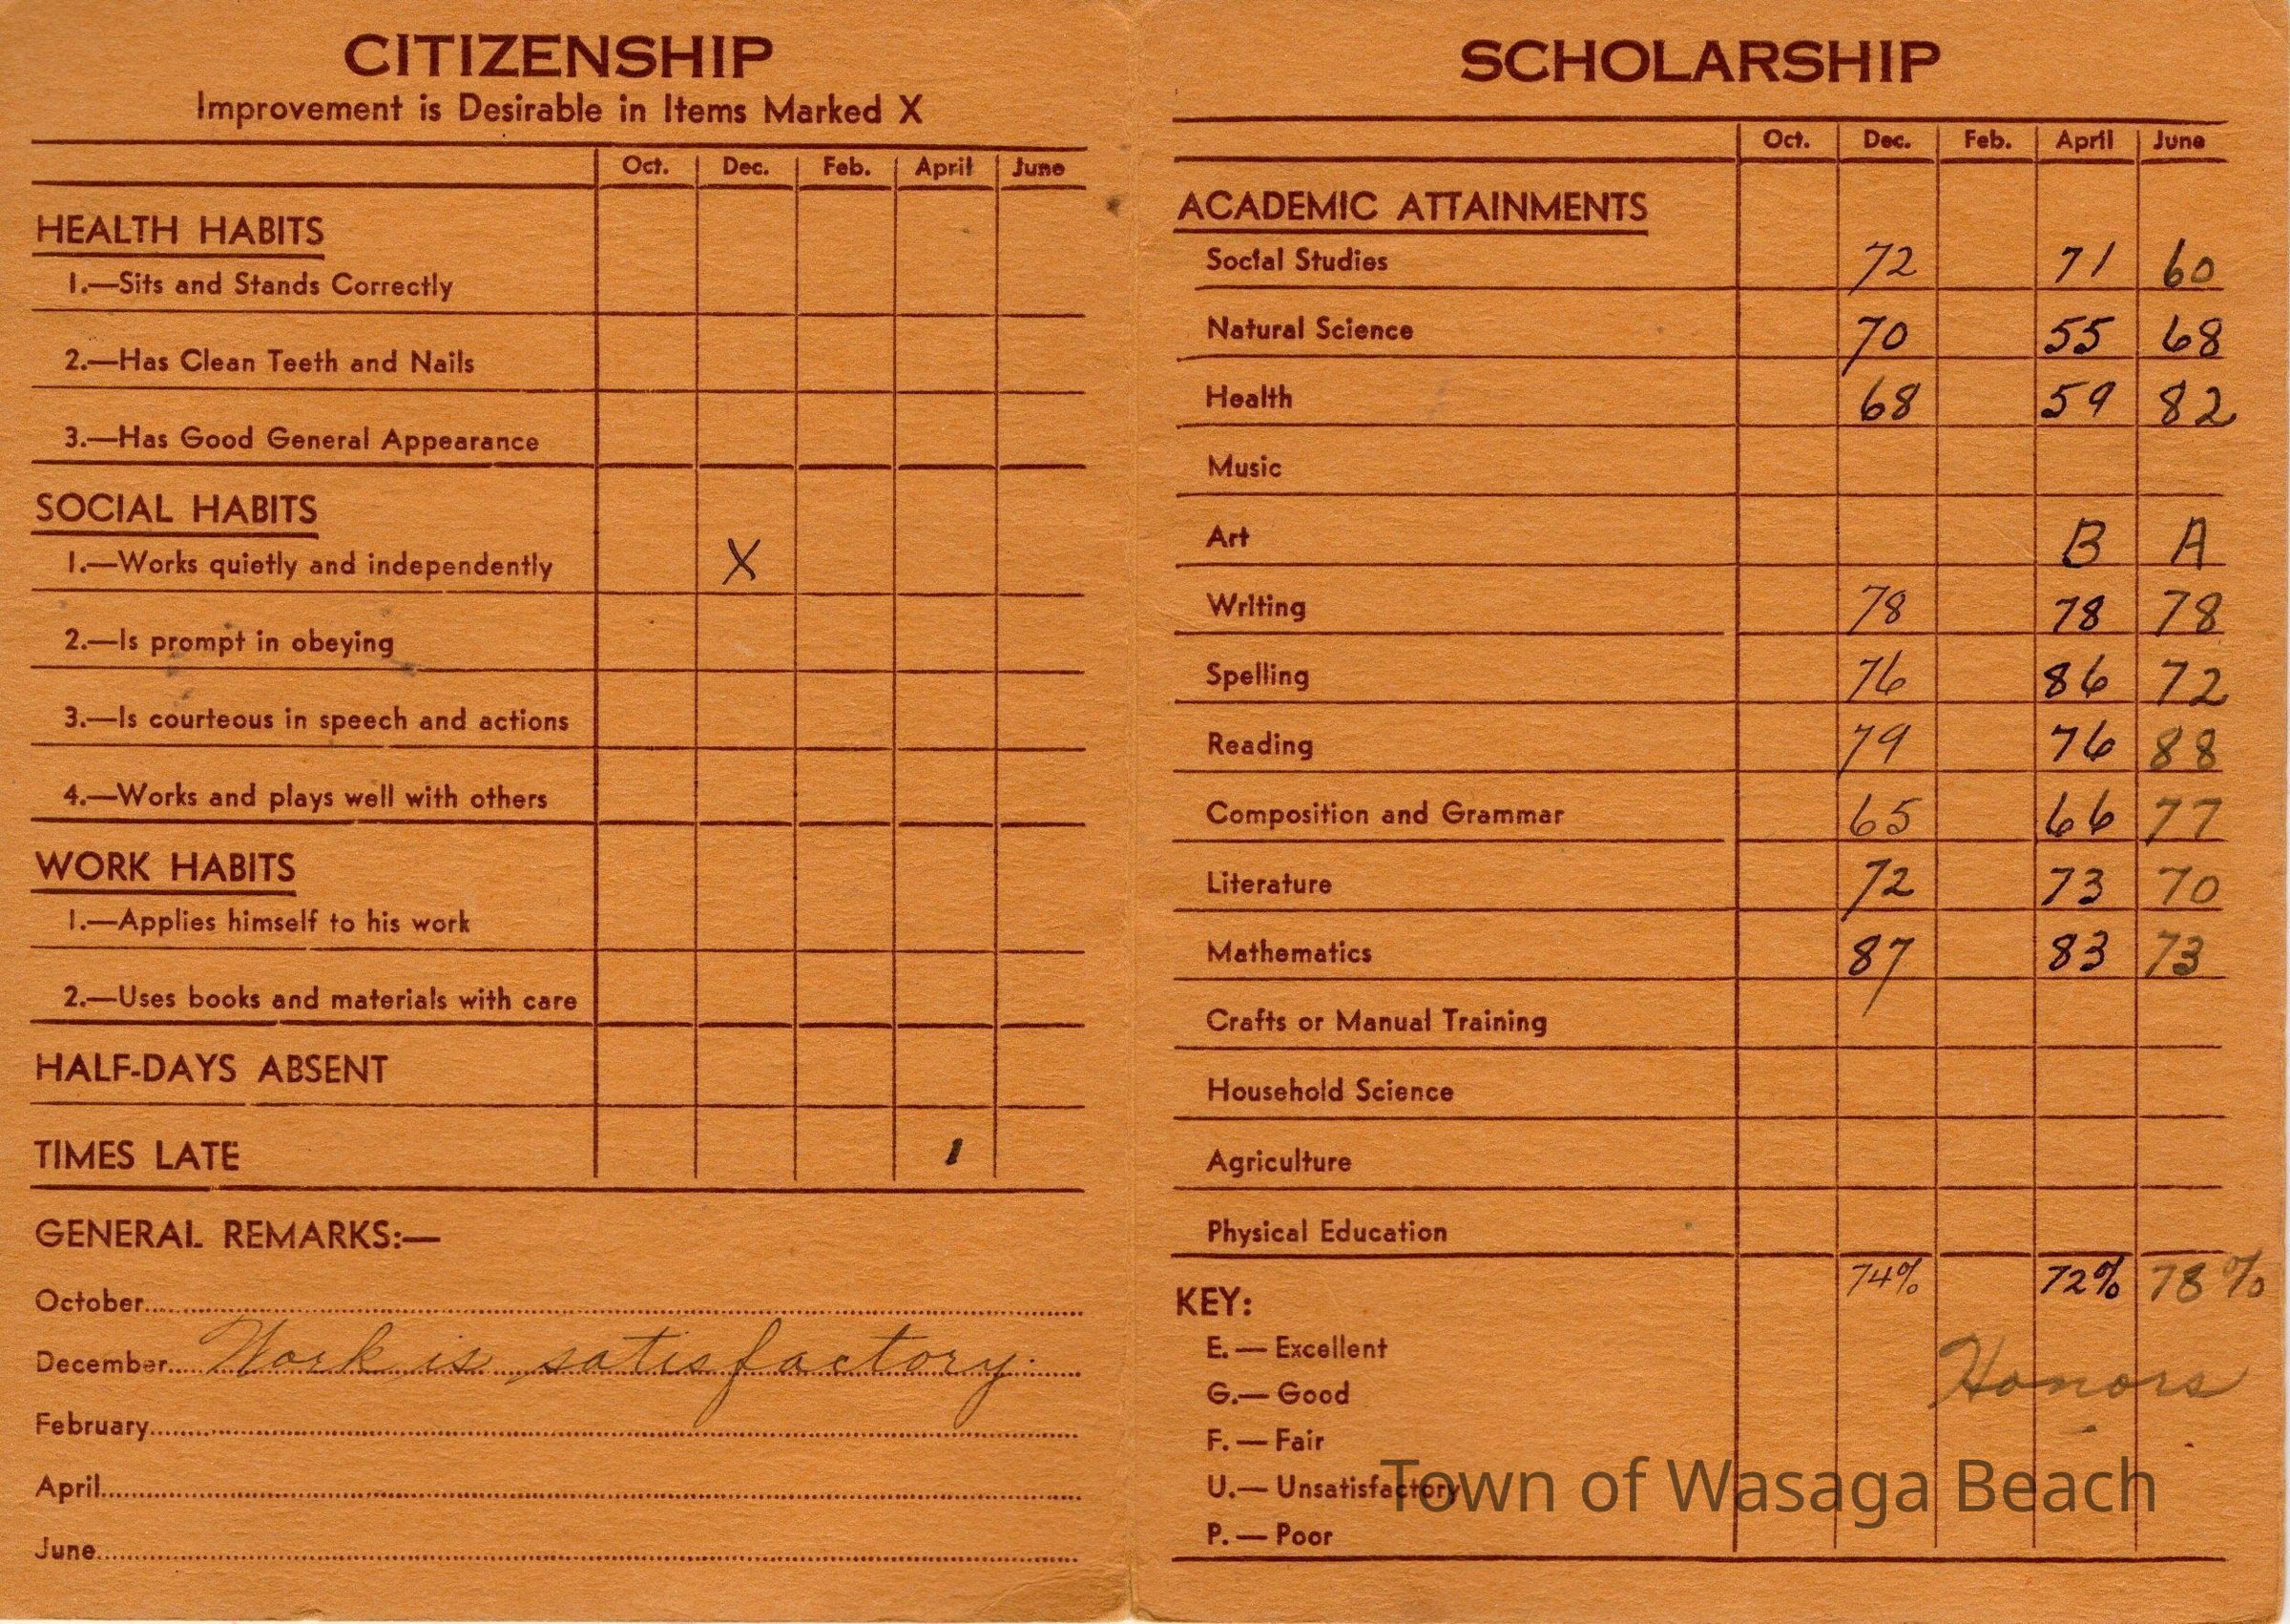 CITIZENSHIP
Improvement is Desirable in Items Marked X
Oct. Dec. Feb. April June
HEALTH HABITS
1.—Sits and Stands Correctly
2.—Has Clean Teeth and Nails
3.—Has Good General Appearance
SOCIAL HABITS
1.—Works quietly and independently X
2.—Is prompt in obeying
3.—Is courteous in speech and actions
4.—Works and plays well with others
WORK HABITS
1.—Applies himself to his work
2.—Uses books and materials with care
HALF-DAYS ABSENT
TIMES LATE 1
GENERAL REMARKS:—
October
December Work is satisfactory.
February
April
June
SCHOLARSHIP
Oct. Dec. Feb. April June
ACADEMIC ATTAINMENTS
Social Studies 72 71 60
Natural Science 70 55 68
Health 68 59 82
Music
Art B A
Writing 78 78 78
Spelling 76 86 72
Reading 79 76 88
Composition and Grammar 65 66 77
Literature 72 73 70
Mathematics 87 83 73
Crafts or Manual Training
Household Science
Agriculture
Physical Education
74% 72% 78%
KEY:
E. — Excellent
Honors
G. — Good
F. — Fair
U. — Unsatisfactory
Town of Wasaga Beach
P. — Poor